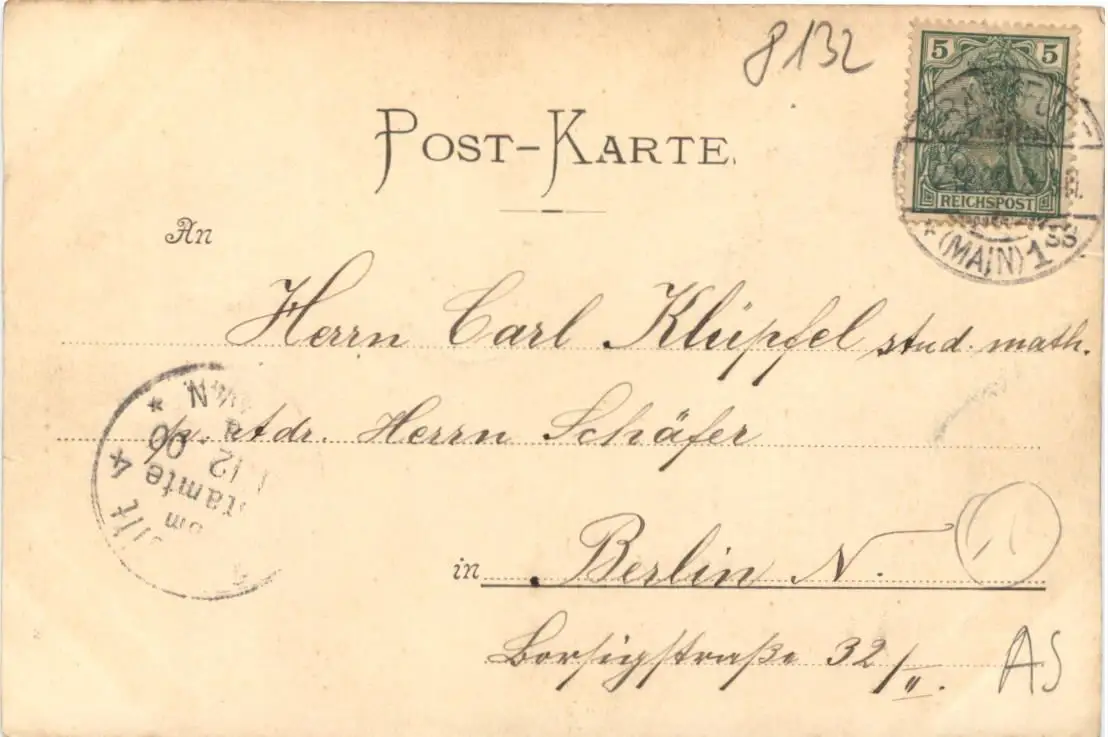 8132
5 5
REICHSPOST
(MAIN) 1
SS
POST-KARTE.
An
Herrn Carl Klüpfel stud. math.
p. Adr. Herrn Schäfer
in Berlin N.
Borsigstraße 32/II.
AS
N *
12 00
4